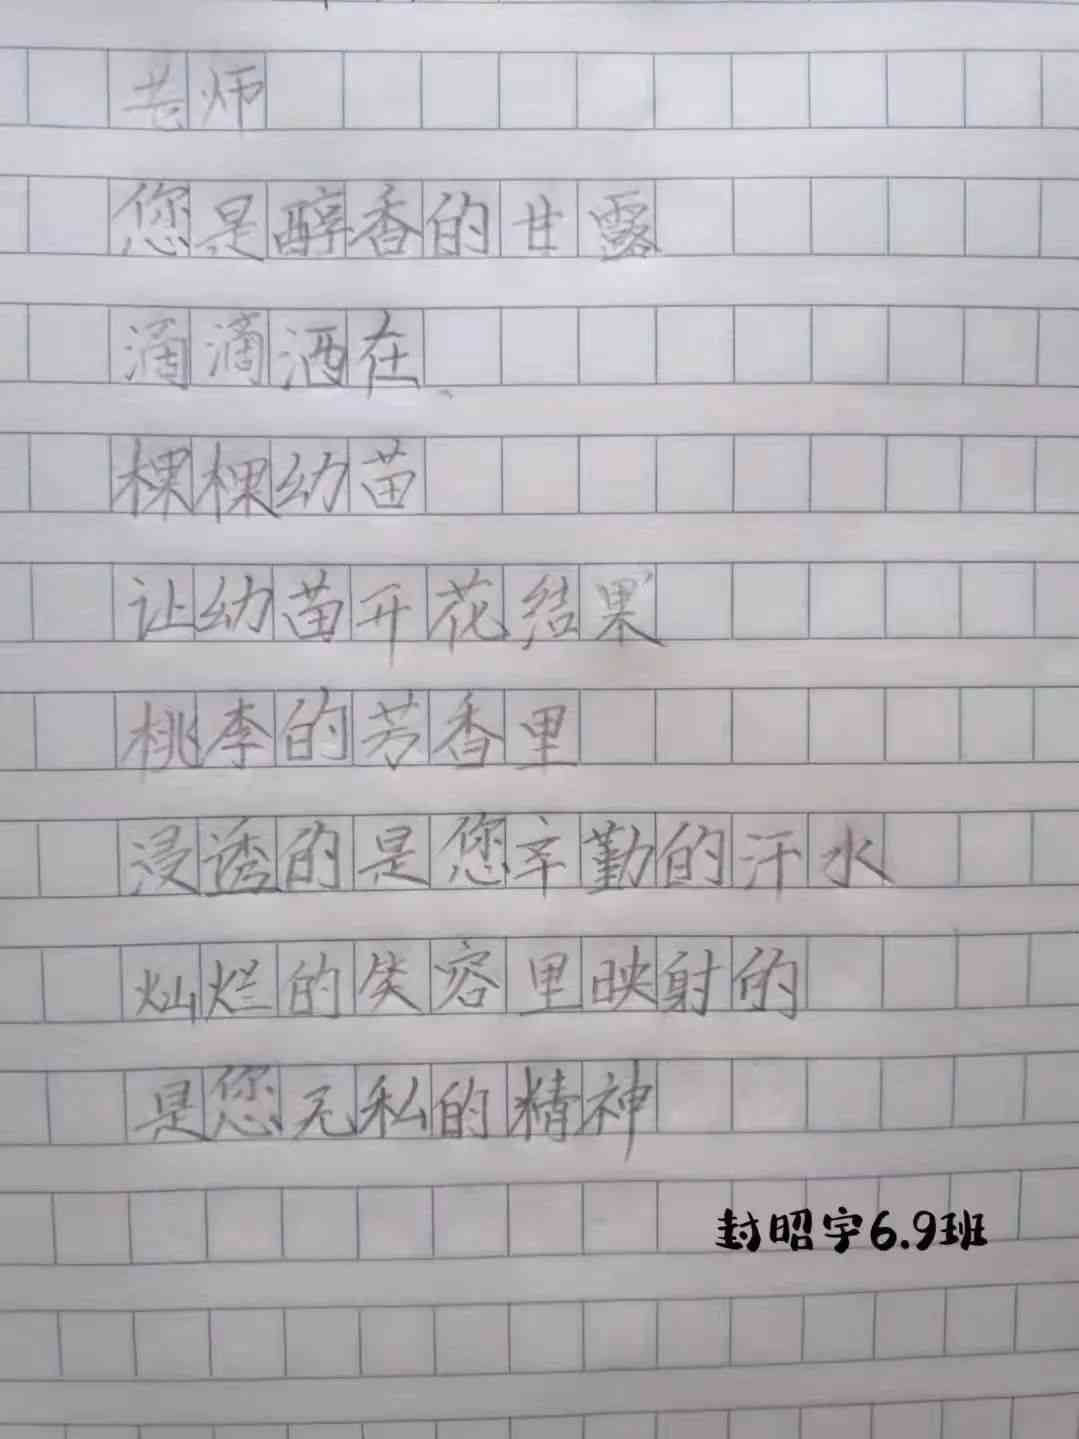 老师
您是醇香的甘露
滴滴洒在
棵棵幼苗
让幼苗开花结果
桃李的芳香里
浸透的是您辛勤的汗水
灿烂的笑容里映射的
是您无私的精神
封昭宇6.9班